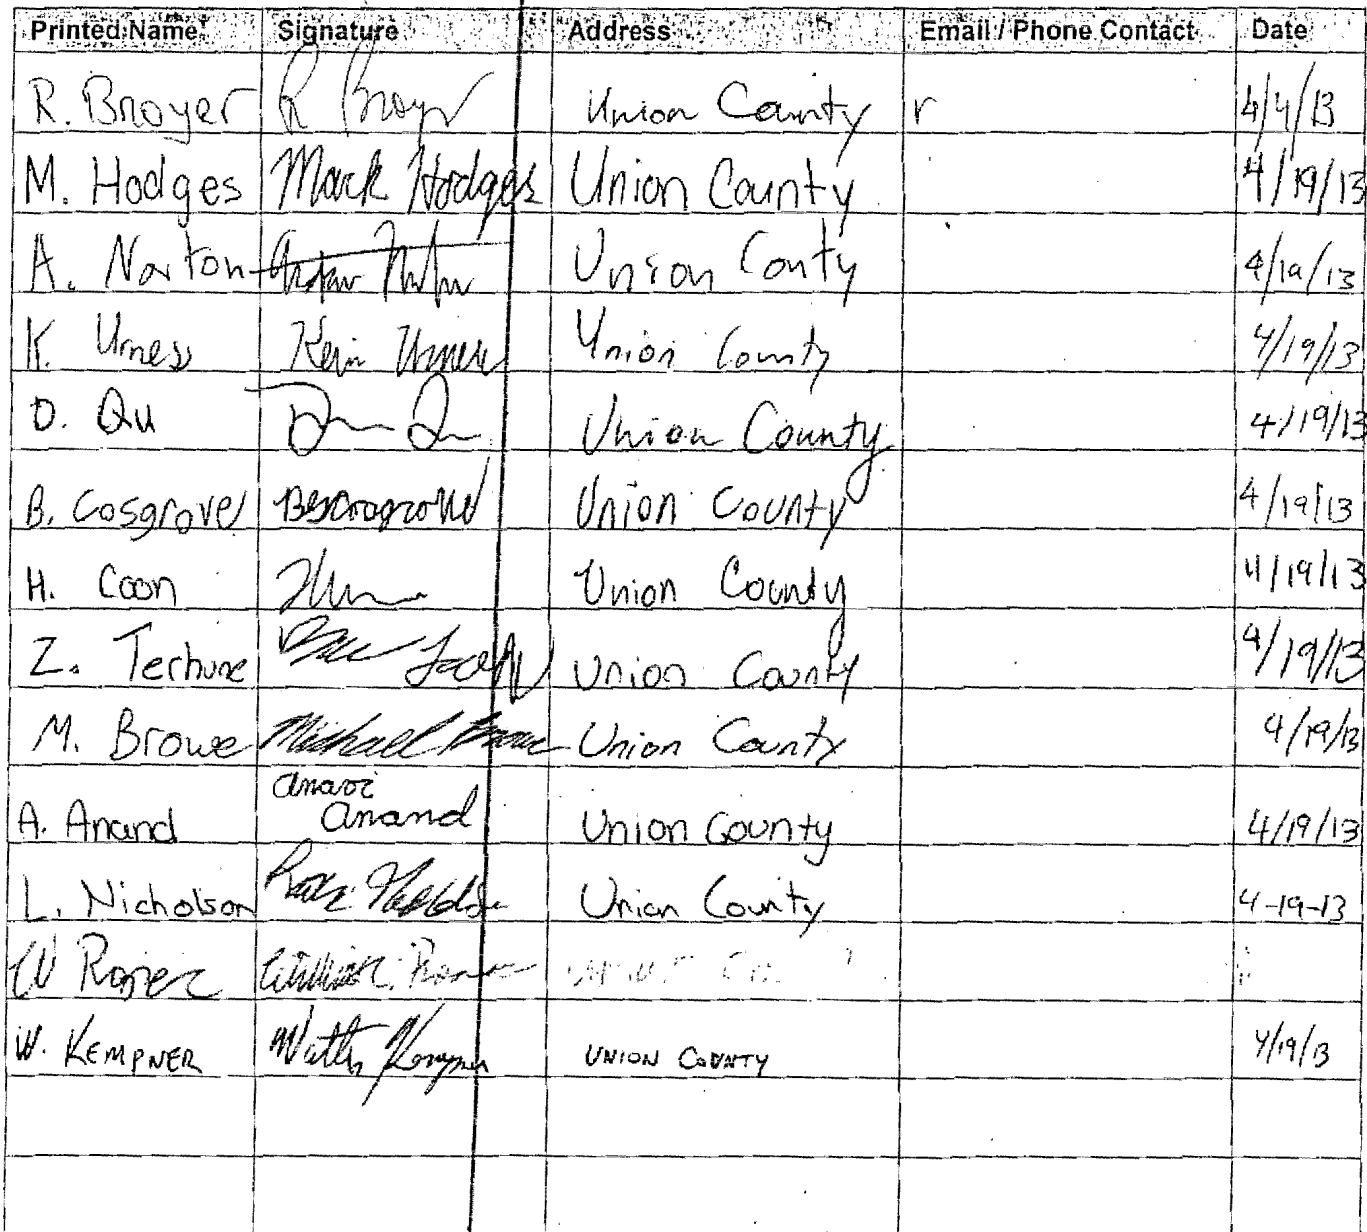 Printed Name Signature Address Email / Phone Contact Date
R. Broyer R Broyer Union County r 4/4/13
M. Hodges Mark Hodges Union County 4/19/13
A. Norton Union Conty 4/19/13
K. Urness Kevin Urness Union County 4/19/13
D. Qu Union County 4/19/13
B. Cosgrove Union County 4/19/13
H. Coon Union County 4/19/13
Z. Terhune Union County 4/19/13
M. Browe Michael Browe Union County 4/19/13
Anavi
A. Anand Anand Union County 4/19/13
L. Nicholson Union County 4-19-13
W William
W. KEMPNER Kempner UNION COUNTY 4/19/13